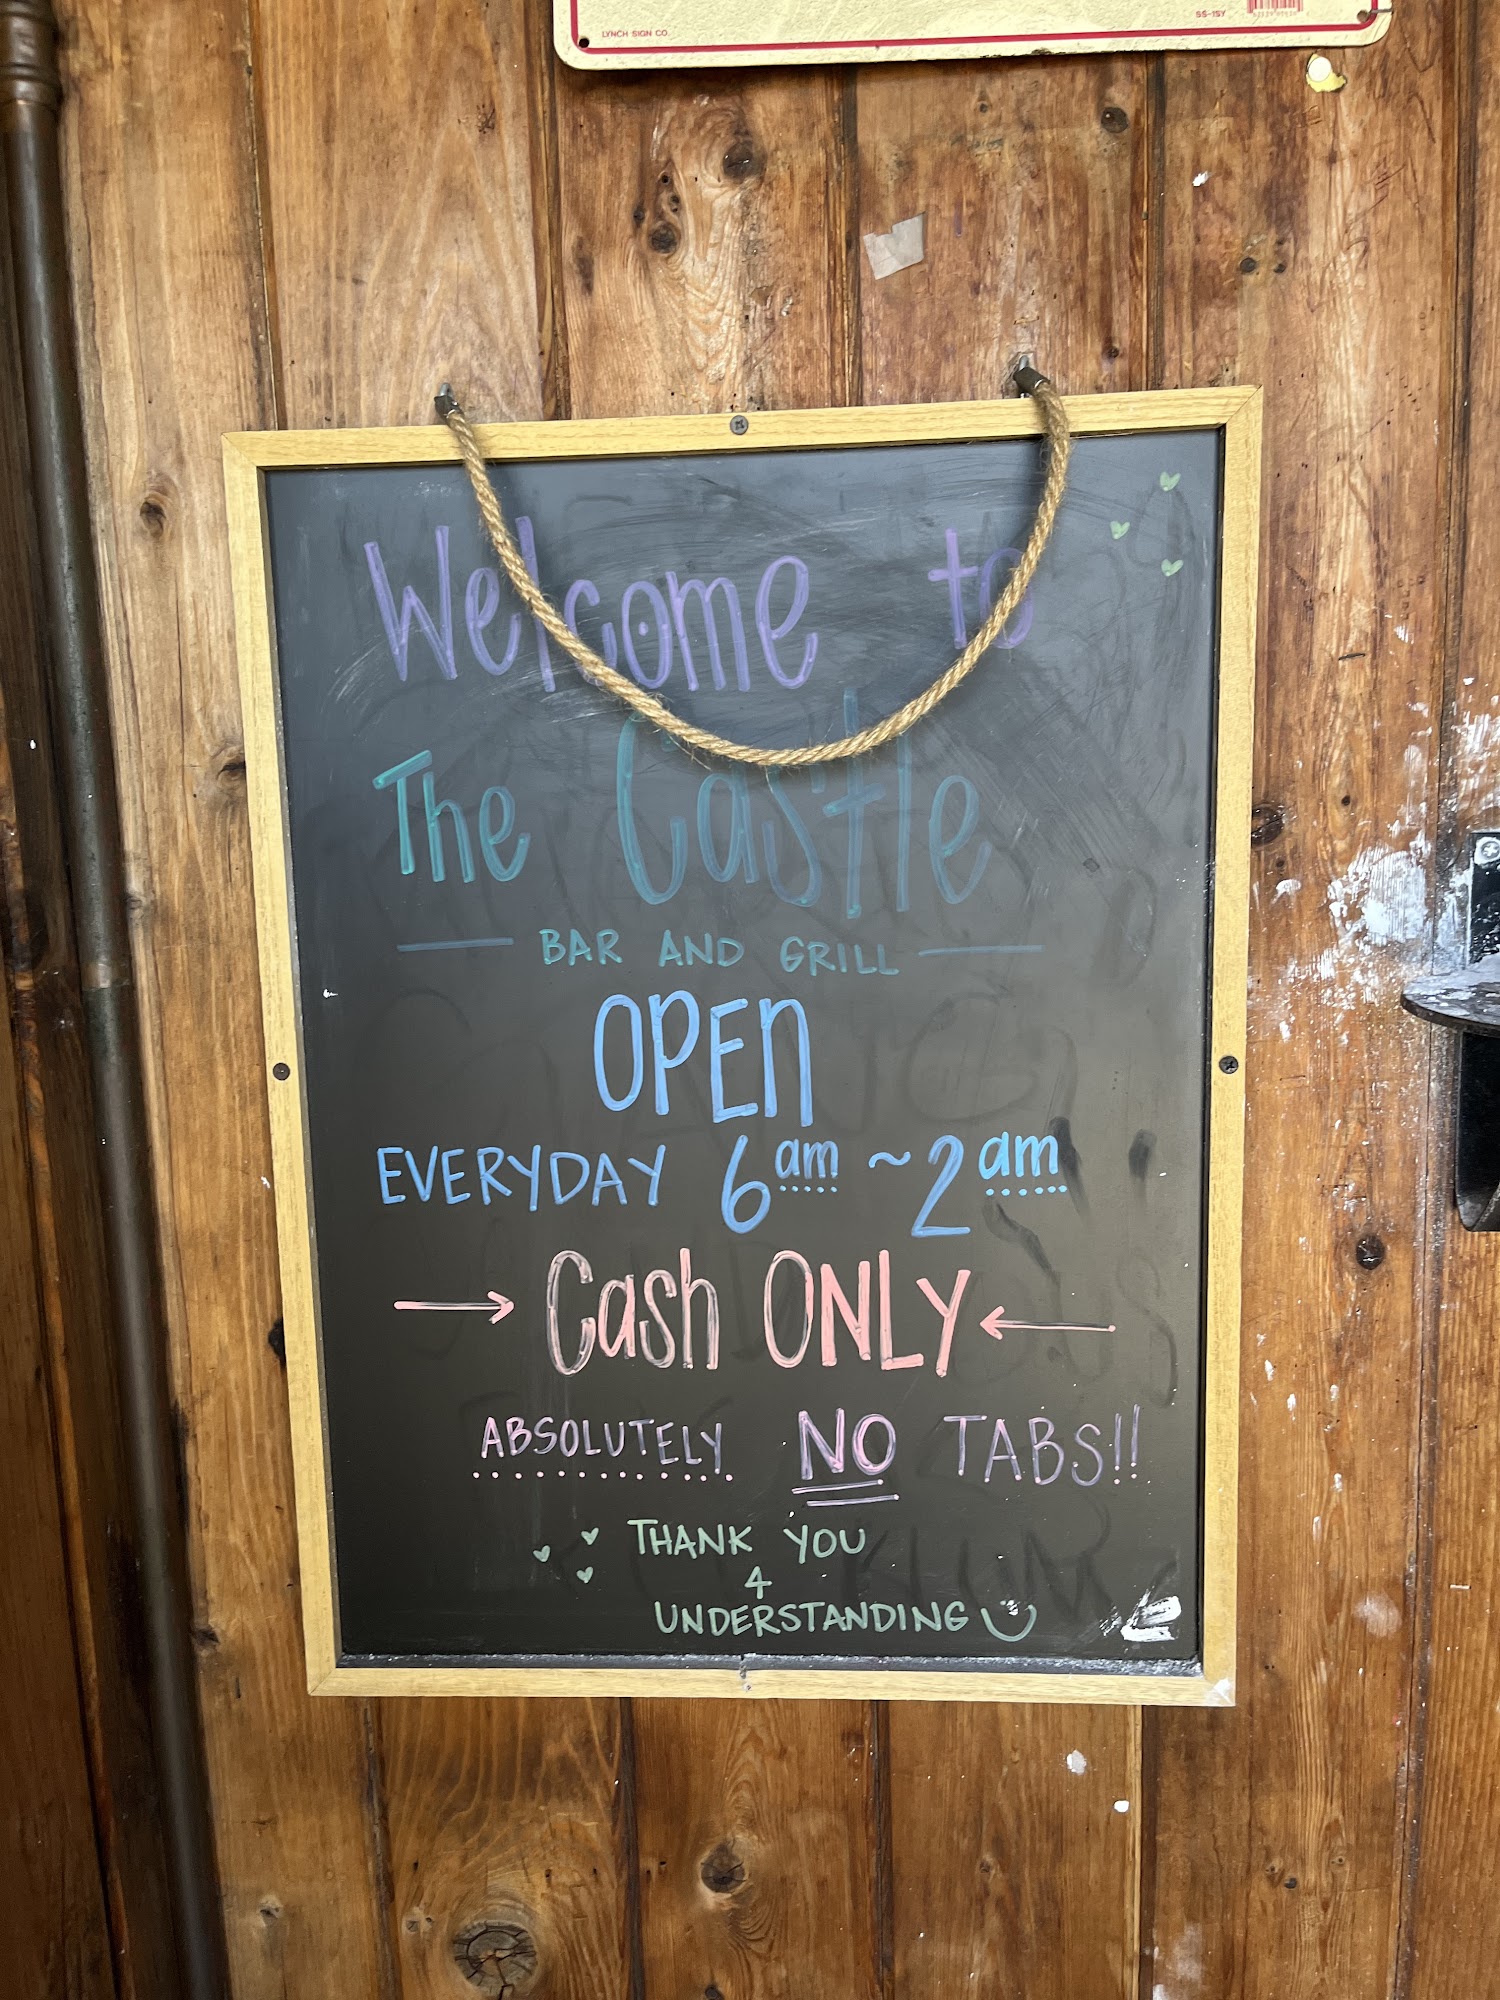 LYNCH SIGN CO.
SS-15Y
Welcome to
The Castle
BAR AND GRILL
OPEN
EVERYDAY 6am ~ 2am
Cash ONLY
ABSOLUTELY NO TABS!!
THANK YOU
4
UNDERSTANDING